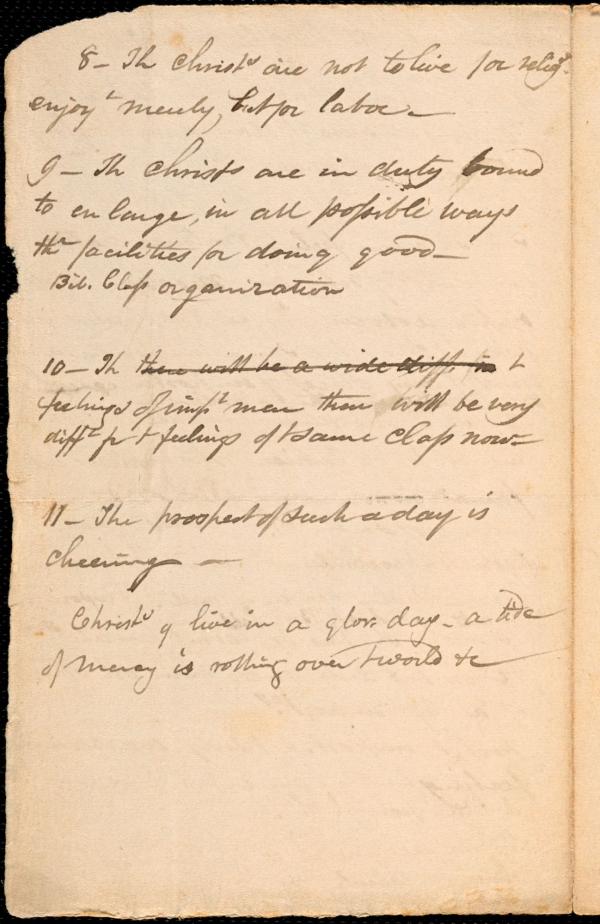 8 – Th Christˢ are not to live for relig.
enjoyᵗ merely, but for labor –
9 – Th Christs are in duty bound
to en large, in all possible ways
thʳ facilities for doing good –
Bib. Class organization
10 – Th there will be a wide diff. in t
feelings of impᵗ men then will be very
diffᵗ fr t feelings of t same class now –
11 – The prospect of such a day is
cheering –
Christˢ y live in a glor. day – a tide
of mercy is rolling over t world &c